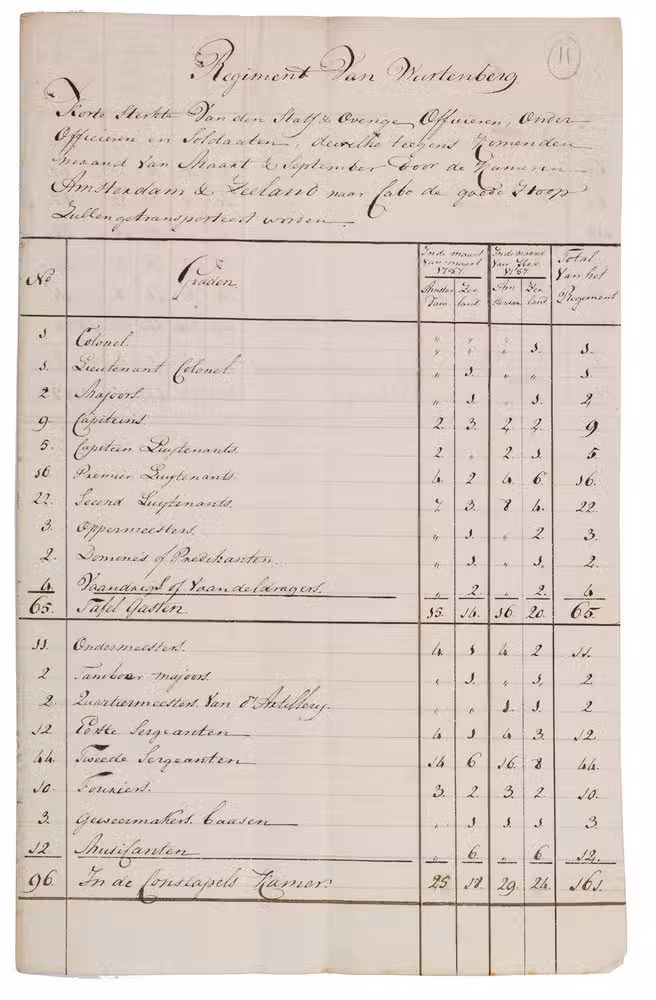 11
Regiment Van Wurtenberg
Korte Sterkte Van den Staff & Overige Officieren, Onder
Officieren en Soldaaten, dewelke teegens Komenden
maand Van Maart & September door de Kameren
Amsterdam & Zeeland naar Cabo de goede Hoop
Zullen getransporteert worden.
No Graden In de maart Van maart 1787. In de maand Van 7ber 1787. Total Van het Regiment
Amster Dam. Zee land. Am sterdam Zee land.
1 Colonel. " " " 1. 1.
1. Lieutenant Colonel. " 1. " " 1
2 Majoors. " 1 " 1. 2
9. Capiteins. 2. 3. 2 2. 9
5. Capitein Luytenants. 2 " 2. 1. 5
16. Premier Luytenants. 4. 2 4. 6. 16.
22. Second Luytenants. 7 3. 8 4. 22.
3. Oppermeesters. " 1. " 2 3.
2. Dominés of Predikanten. " 1. " 1. 2.
4. Vaandrigs of Vaandeldragers. " 2. " 2. 4
65. Tafel Gasten. 15. 14. 16. 20. 65.
11. Ondermeesters. 4. 1 4. 2 11.
2 Tamboer majoors. " 1. " 1. 2
2. Quartiermeesters Van d'Artillery. " " 1. 1. 2
12 Eerste Sergeanten 4 1 4 3. 12.
44. Tweede Sergeanten 14 6 16. 8 44.
10. Fouriers. 3. 2. 3. 2. 10.
3. Geweermakers Baasen " 1 1. 1 3.
12 Musicanten " 6. " 6. 12.
96. In de Constapels Kamer. 25 18. 29. 24. 161.